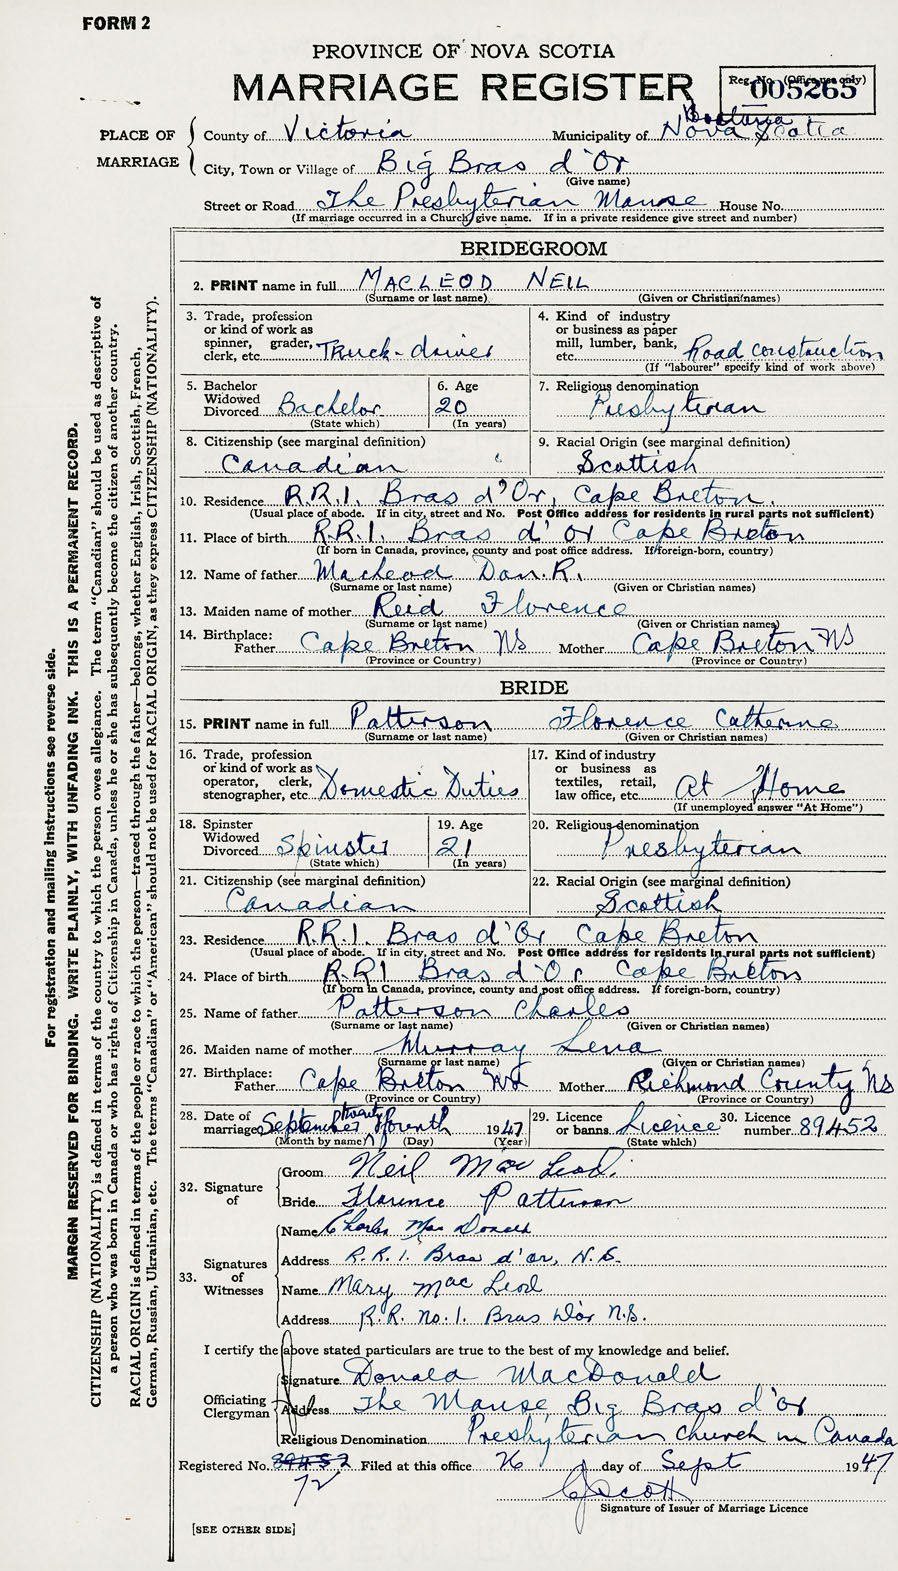 FORM 2
PROVINCE OF NOVA SCOTIA
MARRIAGE REGISTER
Reg. No. (Office use only)
005265
PLACE OF MARRIAGE
County of Victoria Municipality of Nova Scotia
City, Town or Village of Big Bras d'Or
(Give name)
Street or Road The Presbyterian Manse House No.
(If marriage occurred in a Church give name. If in a private residence give street and number)
BRIDEGROOM
2. PRINT name in full MACLEOD NEIL
(Surname or last name) (Given or Christian names)
3. Trade, profession or kind of work as spinner, grader, clerk, etc. Truck-driver
4. Kind of industry or business as paper mill, lumber, bank, etc. Road construction
(If "labourer" specify kind of work above)
5. Bachelor Widowed Divorced Bachelor
(State which)
6. Age 20
(In years)
7. Religious denomination Presbyterian
8. Citizenship (see marginal definition) Canadian
9. Racial Origin (see marginal definition) Scottish
10. Residence R.R.1. Bras d'Or, Cape Breton.
(Usual place of abode. If in city, street and No. Post Office address for residents in rural parts not sufficient)
11. Place of birth R.R.1. Bras d'or Cape Breton
(If born in Canada, province, county and post office address. If foreign-born, country)
12. Name of father MacLeod Dan.R.
(Surname or last name) (Given or Christian names)
13. Maiden name of mother Reid Florence
(Surname or last name) (Given or Christian names)
14. Birthplace: Father Cape Breton NS Mother Cape Breton NS
(Province or Country) (Province or Country)
BRIDE
15. PRINT name in full Patterson Florence Catherine
(Surname or last name) (Given or Christian names)
16. Trade, profession or kind of work as operator, clerk, stenographer, etc. Domestic Duties
17. Kind of industry or business as textiles, retail, law office, etc. At Home
(If unemployed answer "At Home")
18. Spinster Widowed Divorced Spinster
(State which)
19. Age 21
(In years)
20. Religious denomination Presbyterian
21. Citizenship (see marginal definition) Canadian
22. Racial Origin (see marginal definition) Scottish
23. Residence R.R.1. Bras d'Or Cape Breton
(Usual place of abode. If in city, street and No. Post Office address for residents in rural parts not sufficient)
24. Place of birth R.R1 Bras d'Or Cape Breton
(If born in Canada, province, county and post office address. If foreign-born, country)
25. Name of father Patterson Charles
(Surname or last name) (Given or Christian names)
26. Maiden name of mother Murray Lena
(Surname or last name) (Given or Christian names)
27. Birthplace: Father Cape Breton NS Mother Richmond County NS
(Province or Country) (Province or Country)
28. Date of marriage September twenty fourth 1947
(Month by name) (Day) (Year)
29. Licence or banns. Licence
(State which)
30. Licence number 89452
32. Signature of
Groom Neil MacLeod.
Bride Florence Patterson
33. Signatures of Witnesses
Name Charles MacDonald
Address R.R.1. Bras d'or, N.S.
Name Mary MacLeod
Address R.R. No.1. Bras D'or N.S.
I certify the above stated particulars are true to the best of my knowledge and belief.
Officiating Clergyman
Signature Donald MacDonald
Address The Manse, Big Bras d'or
Religious Denomination Presbyterian Church in Canada
Registered No. 89452 Filed at this office 26 day of Sept 1947
72
Signature of Issuer of Marriage Licence
[SEE OTHER SIDE]
For registration and mailing instructions see reverse side.
MARGIN RESERVED FOR BINDING. WRITE PLAINLY, WITH UNFADING INK. THIS IS A PERMANENT RECORD.
CITIZENSHIP (NATIONALITY) is defined in terms of the country to which the person owes allegiance. The term "Canadian" should be used as descriptive of
a person who was born in Canada or who has rights of Citizenship in Canada, unless he or she has subsequently become the citizen of another country.
RACIAL ORIGIN is defined in terms of the people or race to which the person—traced through the father—belongs, whether English, Irish, Scottish, French,
German, Russian, Ukrainian, etc. The terms "Canadian" or "American" should not be used for RACIAL ORIGIN, as they express CITIZENSHIP (NATIONALITY).